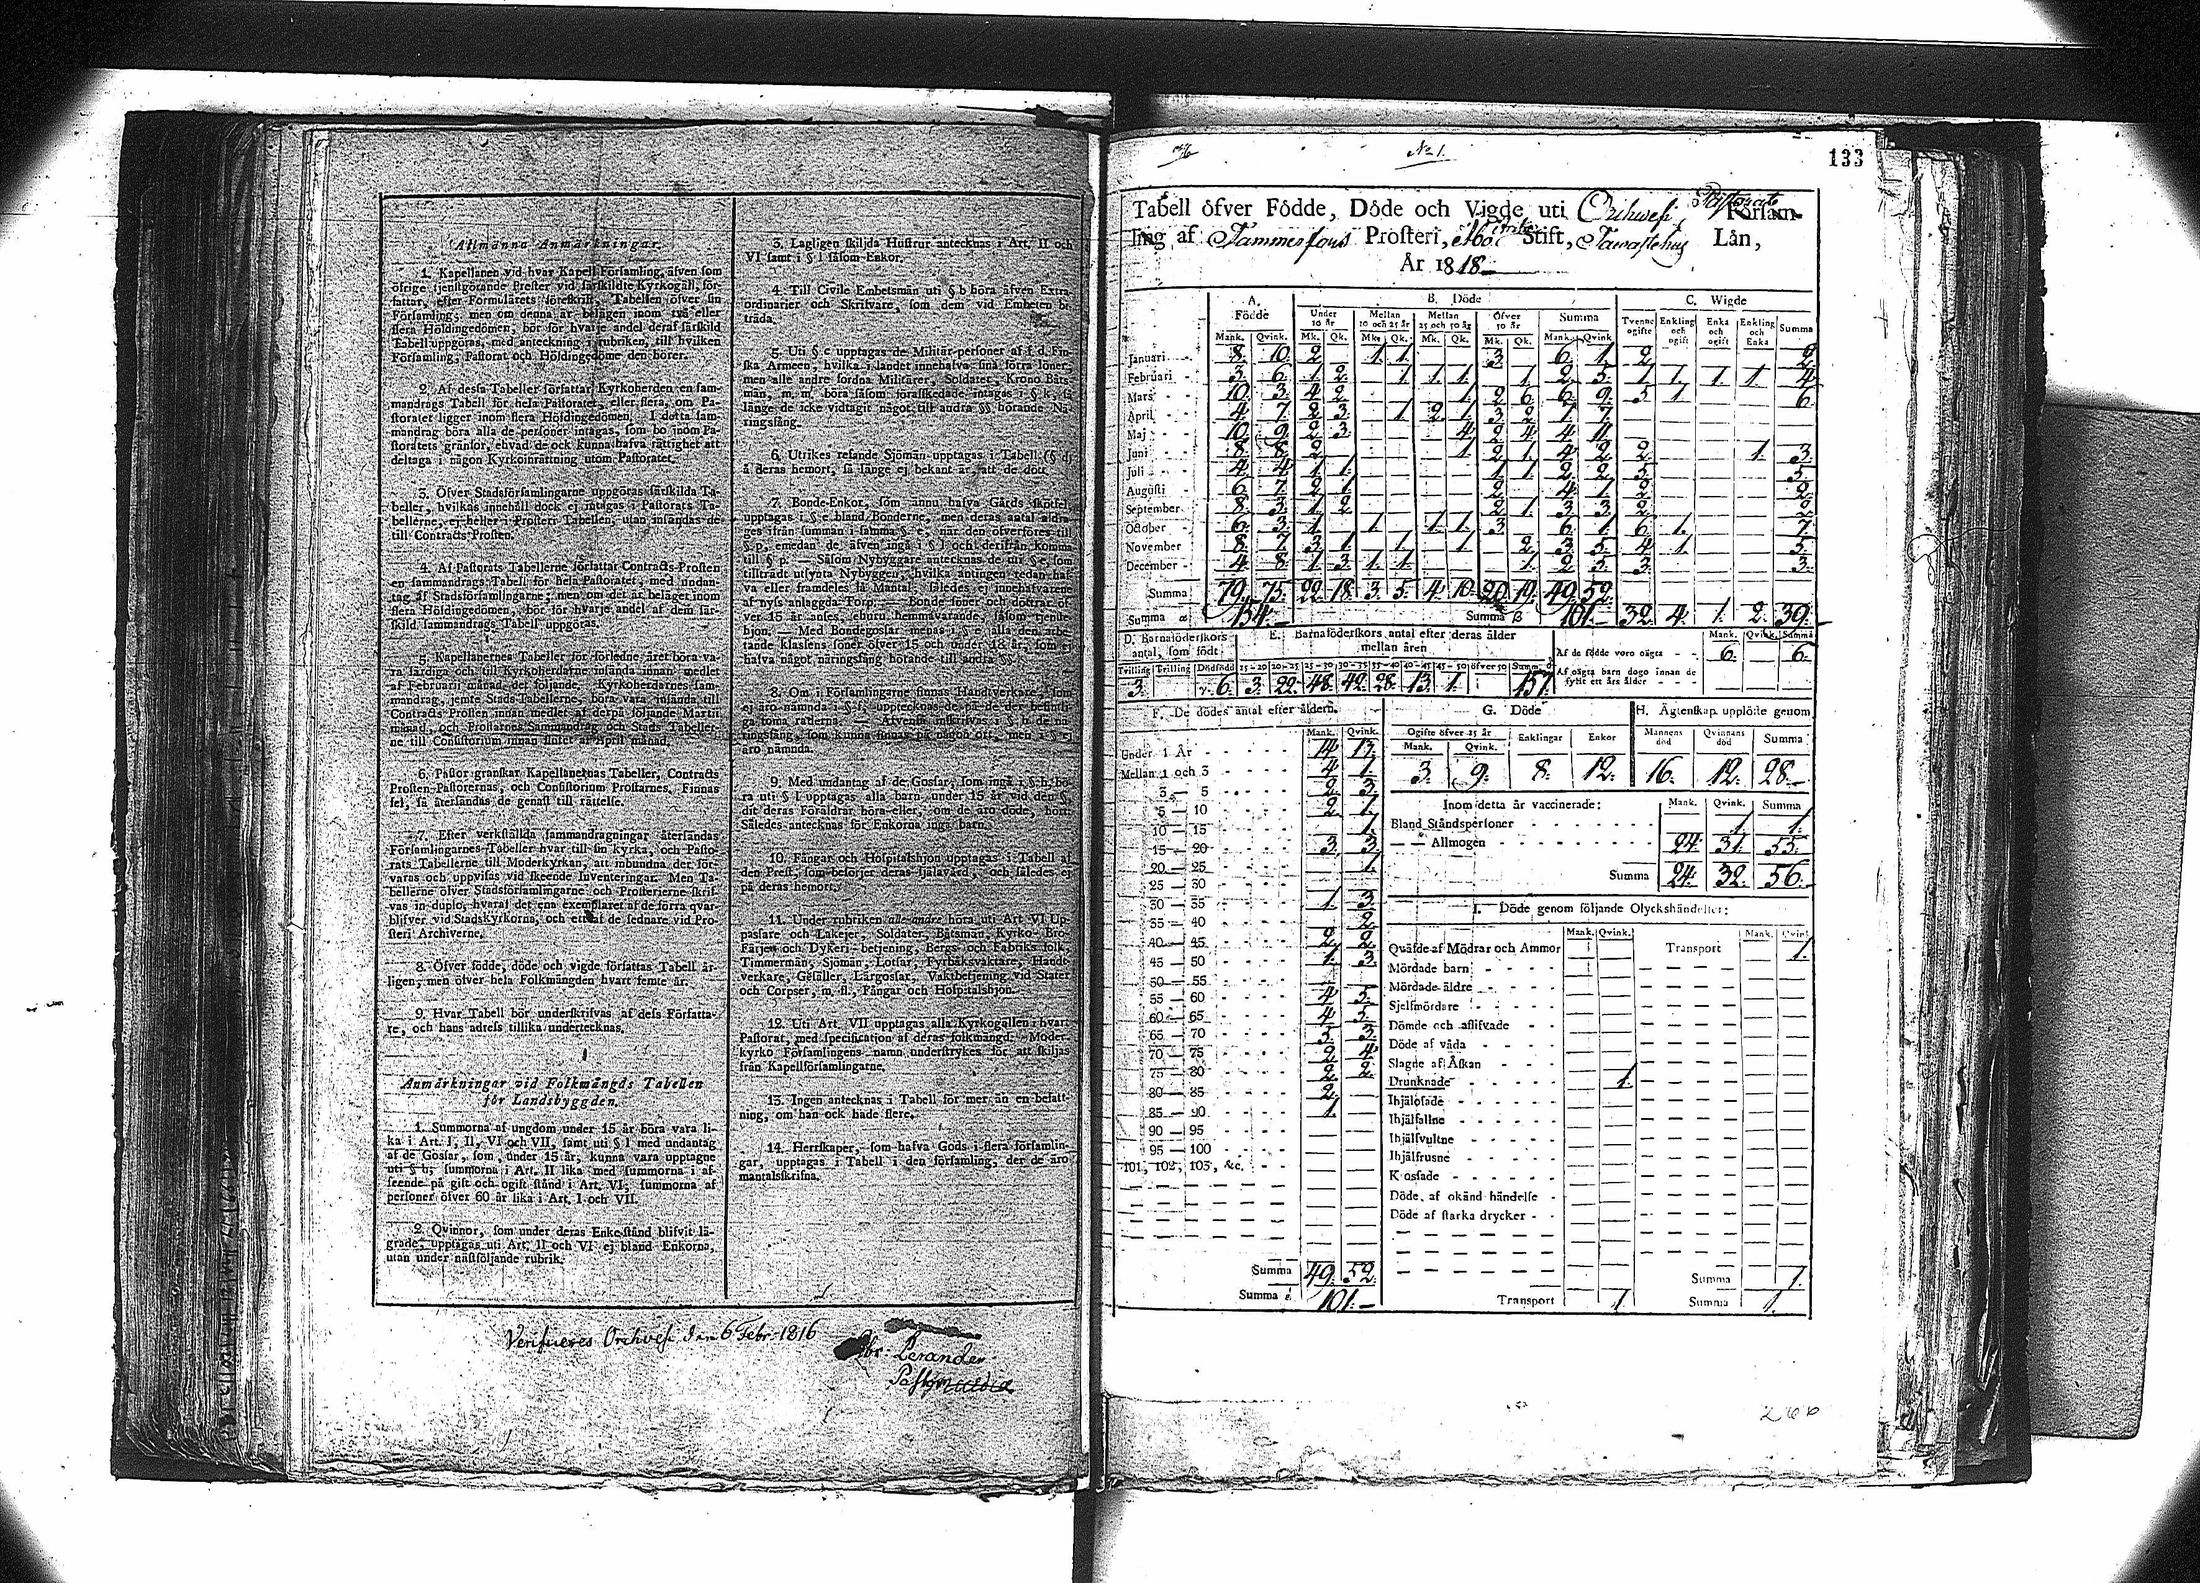 Allmänna Anmärkningar.
1. Kapellanen vid hvar Kapell Församling, äfven som
öfrige tjenstgörande Prester vid särskildte Kyrkogäll, för-
fattar, efter Formulärets föreskrift, Tabellen öfver sin
Församling; men om denna är belägen inom två eller
flera Höfdingedömen, bör för hvarje andel deraf särskild
Tabell uppgöras, med anteckning i rubriken, till hvilken
Församling, Pastorat och Höfdingedöme den hörer.
2. Af dessa Tabeller författar Kyrkoherden en sam-
mandrags Tabell för hela Pastoratet, eller flera, om Pa-
storatet ligger inom flera Höfdingedömen. I detta sam-
mandrag böra alla de personer intagas, som bo inom Pa-
storatets gränsor, ehvad de ock kunna hafva rättighet att
deltaga i någon Kyrkoinrättning utom Pastoratet.
3. Öfver Stadsförsamlingarne uppgöras särskilda Ta-
beller, hvilkas innehåll dock ej intages i Pastorats Ta-
bellerne, ej heller i Prosteri Tabellen, utan insändas de
till Contracts Prosten.
4. Af Pastorats Tabellerne författar Contracts-Prosten
en sammandrags Tabell för hela Pastoratet, med undan-
tag af Stadsförsamlingarne; men om det är beläget inom
flera Höfdingedömen, bör för hvarje andel af dem sär-
skild sammandrags Tabell uppgöras.
5. Kapellanernes Tabeller för förledne året böra va-
ra färdiga och till Kyrkoherdarne insända innan medlet
af Februarii månad det följande. Kyrkoherdarnes sam-
mandrag, jemte Stads Tabellerne, böra vara insända till
Contracts Prosten innan medlet af derpå följande Martii
månad, och Prostarnes Sammandrag och Stads Tabeller-
ne till Consistorium innan slutet af April månad.
6. Pastor granskar Kapellanernas Tabeller, Contracts
Prosten Pastorernas, och Consistorium Prostarnes. Finnas
fel, så återsändas de genast till rättelse.
7. Efter verkställda sammandragningar återsändas
Församlingarnes Tabeller hvar till sin kyrka, och Pasto-
rats Tabellerne till Moderkyrkan, att inbundna der för-
varas och uppvisas vid skeende Inventeringar. Men Ta-
bellerne öfver Stadsförsamlingarne och Prosterierne skrif-
vas in duplo, hvaraf det ena exemplaret af de förra qvar-
blifver vid Stadskyrkorna, och ett af de sednare vid Pro-
steri Archiverne.
8. Öfver födde, döde och vigde författas Tabell år-
ligen; men öfver hela Folkmängden hvart femte år.
9. Hvar Tabell bör underskrifvas af dess Författa-
re, och hans adress tillika undertecknas.
Anmärkningar vid Folkmängds Tabellen
för Landsbyggden.
1. Summorna af ungdom under 15 år böra vara li-
ka i Art. I, II, VI och VII, samt uti § l med undantag
af de Gossar, som, under 15 år, kunna vara upptagne
uti § h; summorna i Art. II lika med summorna i af-
seende på gift och ogift stånd i Art. VI; summorna af
personer öfver 60 år lika i Art. I och VII.
2. Qvinnor, som under deras Enkestånd blifvit lä-
grade, upptagas uti Art. II och VI ej bland Enkorna,
utan under nästföljande rubrik.
3. Lagligen skiljda Hustrur antecknas i Art. II och
VI samt i § l såsom Enkor.
4. Till Civile Embetsmän uti § b höra äfven Extra
ordinarier och Skrifvare, som dem vid Embeten bi-
träda.
5. Uti § c upptagas de Militär-personer af f. d. Fin-
ska Armeen, hvilka i landet innehafva sina förra löner,
men alle andre fordna Militärer, Soldater, Krono Båts-
män, m. m. böra såsom förafskedade intagas i § k, så
länge de icke vidtagit något till andra §§ hörande Nä-
ringsfång.
6. Utrikes resande Sjömän upptagas i Tabell (§ d)
å deras hemort, så länge ej bekant är, att de dött.
7. Bonde-Enkor, som ännu hafva Gårds skötsel,
upptagas i § e bland Bönderne, men deras antal afdra-
ges ifrån summan i samma § e, när den öfverföres till
§ p, emedan de äfven ingå i § l och derifrån komma
till § p. — Såsom Nybyggare antecknas de uti § e, som
tillträdt utsynta Nybyggen, hvilka antingen redan haf-
va eller framdeles få Mantal — således ej innehafvarene
af nyss anlaggda Torp. — Bonde söner och döttrar öf-
ver 15 år anses, ehuru hemmavarande, såsom tjenste-
hjon. — Med Bondegossar menas i § e alla den arbe-
tande klassens söner öfver 15 och under 18 år, som ej
hafva något näringsfång hörande till andra §§.
8. Om i Församlingarne finnas Handtverkare, som
ej äro nämnda i § f, upptecknas de på de der befintli-
ga toma raderna. — Äfvenså inskrifvas i § h de nä-
ringsfång, som kunna finnas på någon ort, men i § ej
äro nämnda.
9. Med undantag af de Gossar, som ingå i § h, bö-
ra uti § l upptagas alla barn under 15 år vid den §,
dit deras Föräldrar höra eller, om de äro döde, hört.
Således antecknas för Enkorna inga barn.
10. Fångar och Hospitalshjon upptagas i Tabell af
den Prest, som besörjer deras själavård, och således ej
på deras hemort.
11. Under rubriken alle andre höra uti Art VI Up-
passare och Lakejer, Soldater, Båtsmän, Kyrko- Bro-
Färje- och Dykeri- betjening, Bergs- och Fabriks folk,
Timmermän, Sjömän, Lotsar, Fyrbåksvaktare, Handt-
verkare, Gesäller, Lärgossar, Vaktbetjening vid Stater
och Corpser, m. fl., Fångar och Hospitalshjon.
12. Uti Art. VII upptagas alla Kyrkogällen i hvart
Pastorat, med specification af deras folkmängd. Moder-
kyrko Församlingens namn understrykes för att skiljas
från Kapellförsamlingarne.
13. Ingen antecknas i Tabell för mer än en befatt-
ning, om han ock hade flere.
14. Herrskaper, som hafva Gods i flera församlin-
gar, upptagas i Tabell i den församling, der de äro
mantalsskrifna.
Verifieres Orihvesi den 6 Febr: 1816
Perander
No 1.
133
Tabell öfver Födde, Döde och Vigde uti Orihvesi Pastorat Församling
af Tammerfors Prosteri, Åbo Stift, Tawastehus Län,
År 1818
A. Födde B. Döde C. Wigde
Under 10 år Mellan 10 och 25 år Mellan 25 och 50 år Öfver 50 år Summa Tvenne ogifte Enkling och ogift Enka och ogift Enkling och Enka Summa
Mank. Qvink. Mk. Qk. Mk. Qk. Mk. Qk. Mk. Qk. Mank. Qvink
Januari 8. 10. 2. 1. 1. 3. 6. 1. 2. 2.
Februari 3. 6. 1. 2. 1. 1. 1. 1. 2. 5. 1. 1. 1. 1. 4.
Mars 10. 3. 4. 2. 1. 2. 6. 6. 9. 5. 1. 6.
April 4. 7. 2. 3. 1. 2. 1. 3. 2. 7. 7.
Maj 10. 9. 2. 3. 4. 2. 4. 4. 11.
Juni 8. 8. 2. 1. 2. 1. 4. 2. 2. 1. 3.
Juli 4. 4. 1. 1. 1. 1. 2. 2. 5. 5.
Augusti 6. 7. 2. 1. 2. 4. 1. 2. 2.
September 8. 3. 1. 2. 2. 1. 3. 3. 2. 2.
October 6. 3. 1. 1. 1. 1. 3. 6. 1. 6. 1. 7.
November 8. 7. 3. 1. 1. 1. 2. 3. 5. 4. 1. 5.
December 4. 8. 1. 3. 1. 1. 1. 2. 5. 3. 3.
Summa 79. 75. 22. 18. 3. 5. 4. 10. 20. 19. 49. 52.
Summa α 154. Summa β 101. 32. 4. 1. 2. 39.
D. Barnaföderskors antal, som födt
Tvilling Trilling Dödfödd
3. 6.
E. Barnaföderskors antal efter deras ålder mellan åren
15-20 20-25 25-30 30-35 35-40 40-45 45-50 öfver 50 Summa
3. 22. 48. 42. 28. 13. 1. 157.
Mank. Qvink. Summa
Af de födde voro oägta 6. 6.
Af oägta barn dogo innan de
fyllt ett års ålder
F. De dödes antal efter åldern.
Mank. Qvink.
Under 1 År 14. 13.
Mellan 1 och 3 4. 1.
3 — 5 2. 3.
5 — 10 2. 1.
10 — 15 1.
15 — 20 3. 3.
20 — 25 1.
25 — 30
30 — 35 1. 3.
35 — 40 2.
40 — 45 2. 2.
45 — 50 1. 3.
50 — 55
55 — 60 4. 5.
60 — 65 4. 5.
65 — 70 5. 3.
70 — 75 2. 4.
75 — 80 2. 2.
80 — 85 2.
85 — 90 1.
90 — 95
95 — 100
101, 102, 103, &c.
Summa 49. 52.
Summa 101.
G. Döde
Ogifte öfver 15 år Enklingar Enkor
Mank. Qvink.
3. 9. 8. 12.
H. Ägtenskap upplöste genom
Mannens död Qvinnans död Summa
16. 12. 28.
Inom detta år vaccinerade: Mank. Qvink. Summa
Bland Ståndspersoner 1. 1.
— — Allmogen 24. 31. 55.
Summa 24. 32. 56.
I. Döde genom följande Olyckshändelser:
Mank. Qvink. Mank. Qvink
Qväfde af Mödrar och Ammor Transport 1.
Mördade barn
Mördade äldre
Sjelfmördare
Dömde och aflifvade
Döde af våda
Slagne af Åskan
Drunknade 1.
Ihjälosade
Ihjälfallne
Ihjälsvultne
Ihjälfrusne
Krossade
Döde af okänd händelse
Döde af starka drycker
Summa 1.
Transport 1. Summa 1.